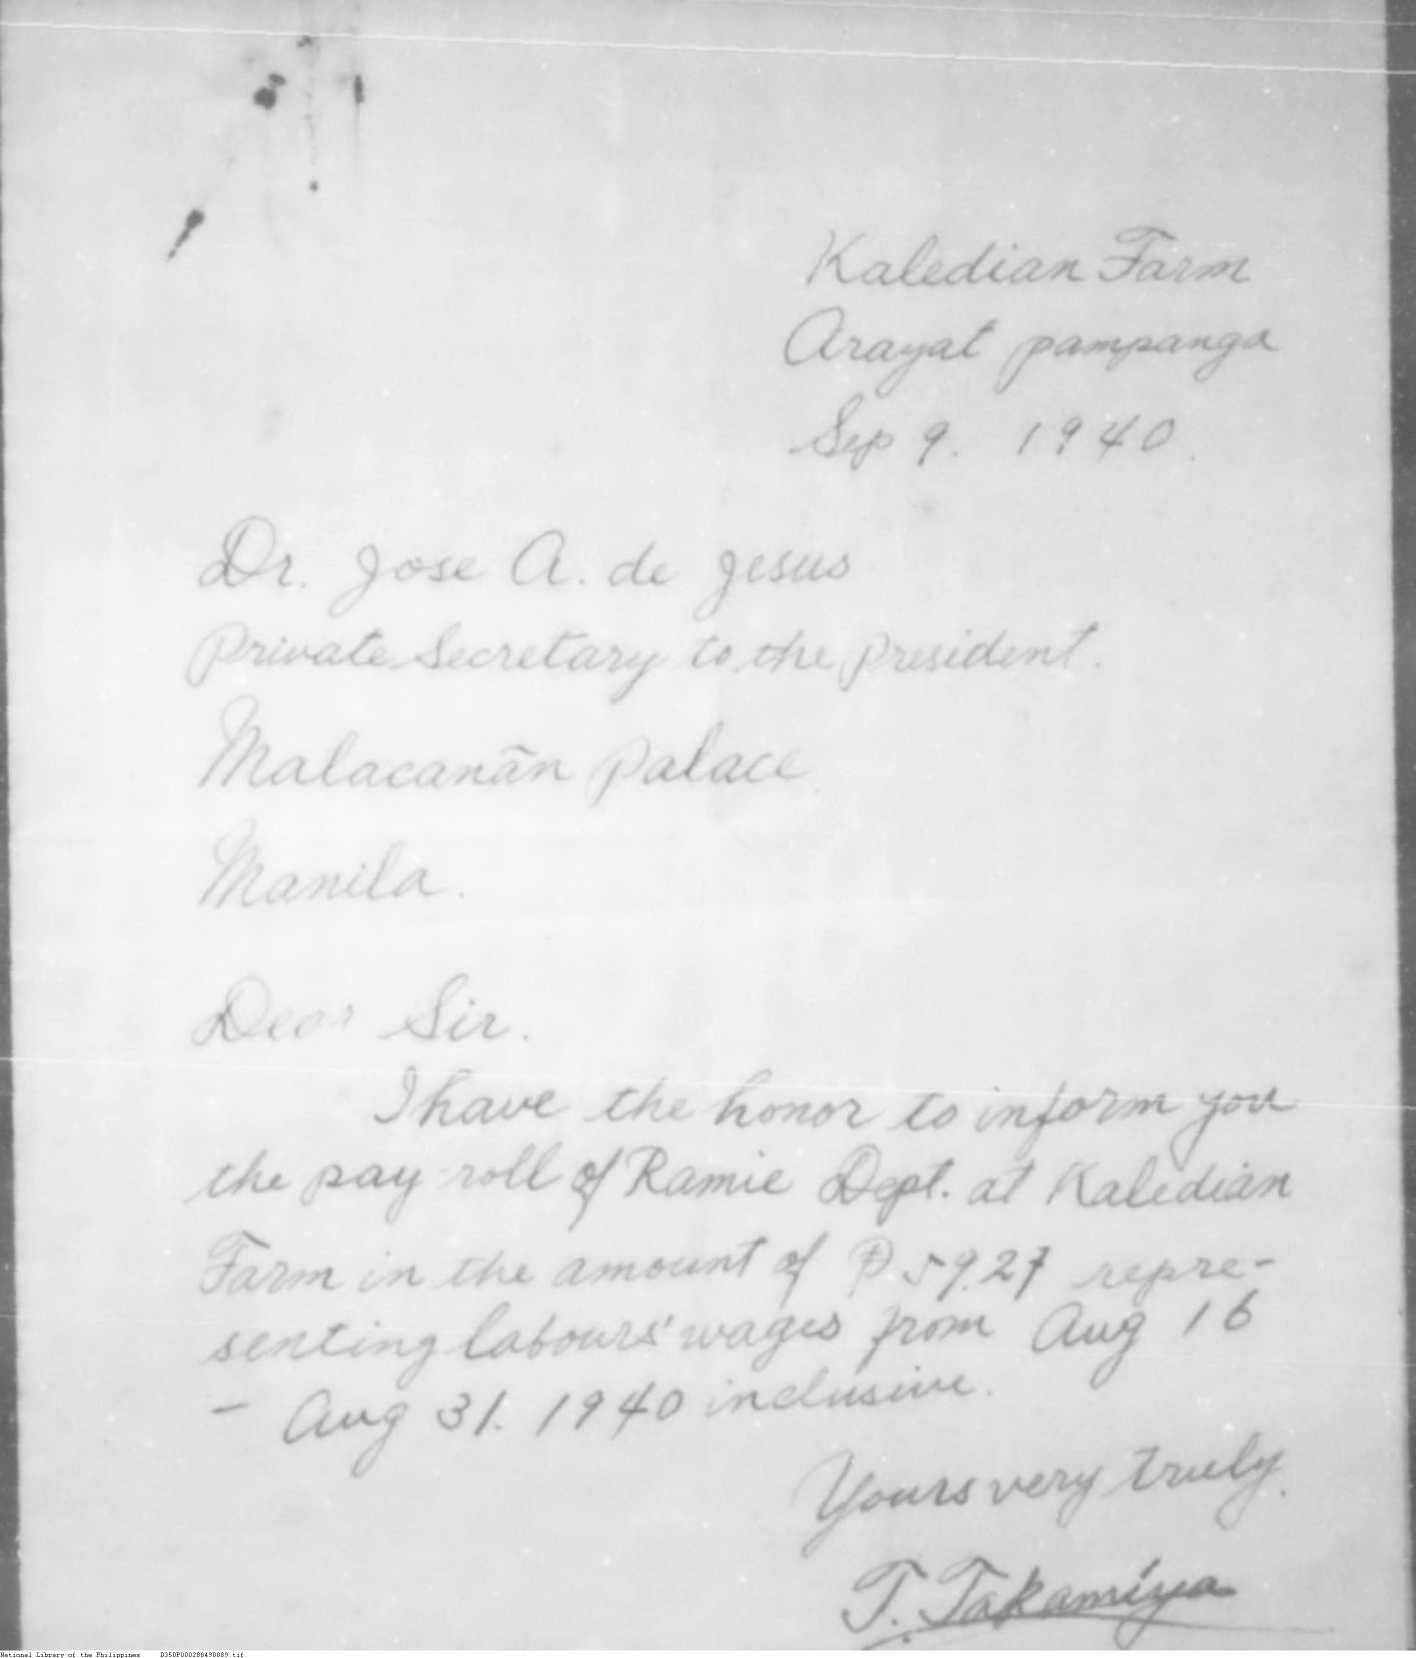 Kaledian Farm
Arayat pampanga
Sep 9. 1940.
Dr. Jose A. de Jesus
Private Secretary to the President.
Malacanãn Palace
Manila.
Dear Sir.
I have the honor to inform you
the pay roll of Ramie Dept. at Kaledian
Farm in the amount of ₱.59.27 repre-
senting labours' wages from Aug 16
- Aug 31. 1940 inclusive.
Yours very truly.
T. Takamiya
National Library of the Philippines D350P000288490889.tif